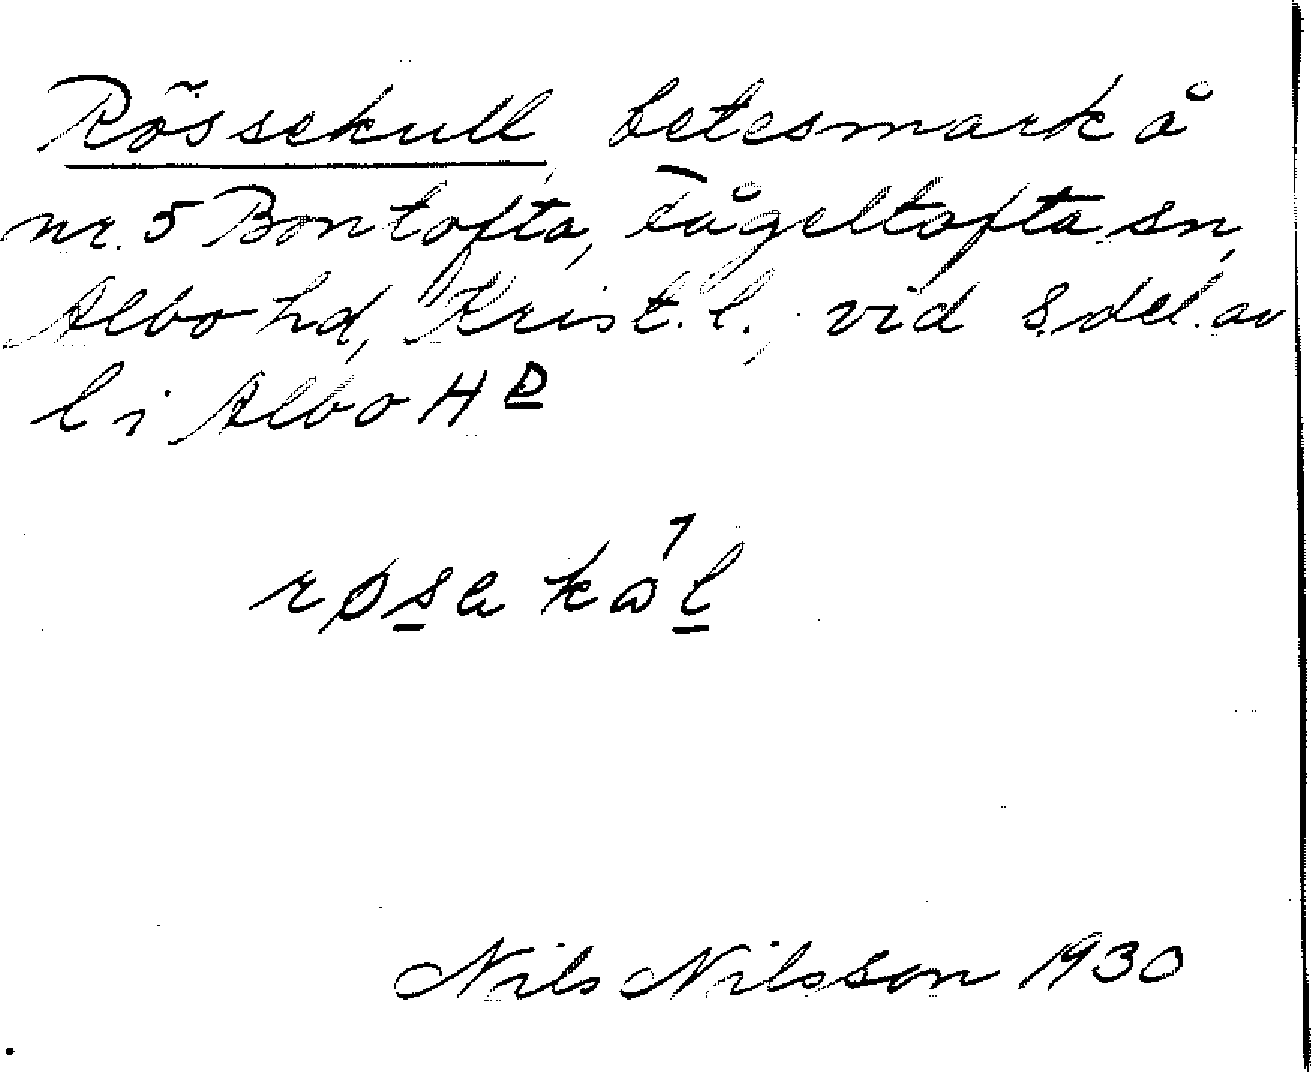 Rössekull, betesmark å
nr. 5 Bontofta, Tågeltofta sn,
Albo hd, Krist. l., vid s. del. av
l i Albo H D
røsa kål
Nils Nilsson 1930